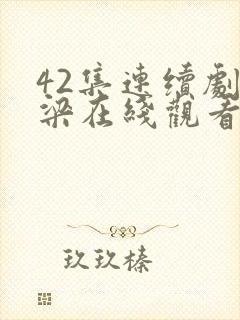 42集連續劇
梁在綫觀看
玖玖榛